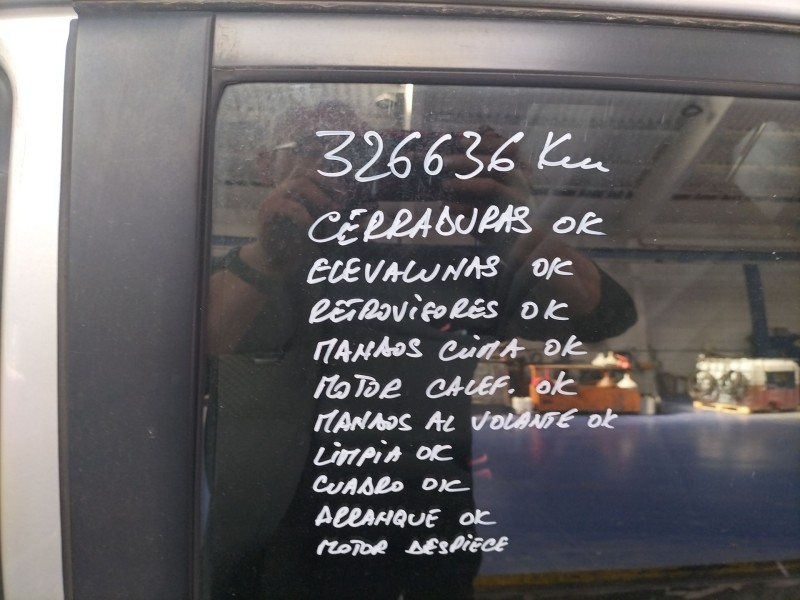 326636 Km
CERRADURAS OK
ELEVALUNAS OK
RETROVISORES OK
MANDOS CLIMA OK
MOTOR CALEF. OK
MANDOS AL VOLANTE OK
LIMPIA OK
CUADRO OK
ARRANQUE OK
MOTOR DESPIECE